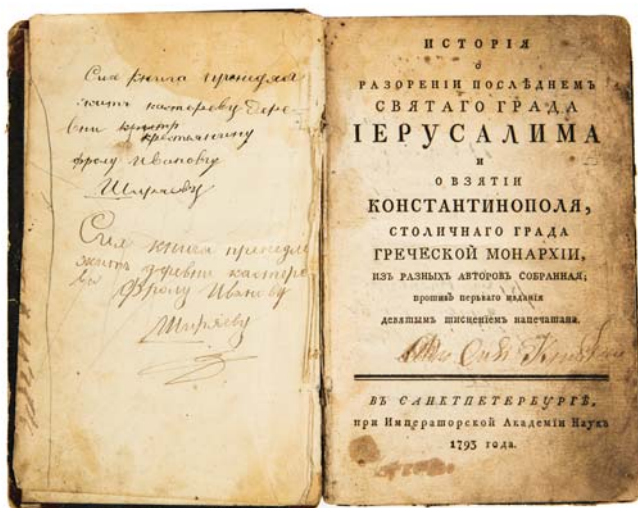 Сия книга принедле
жить кастереву дере
вни
крестьянину
фролу Ивановву
Ширяеву
Сия книга принедле
жить деревни кастере
ву Фролу Иванову
Ширяеву
ИСТОРІЯ
о
РАЗОРЕНІИ ПОСЛѢДНЕМЪ
СВЯТАГО ГРАДА
ІЕРУСАЛИМА
И
О ВЗЯТІИ
КОНСТАНТИНОПОЛЯ,
СТОЛИЧНАГО ГРАДА
ГРЕЧЕСКОЙ МОНАРХІИ,
ИЗЪ РАЗНЫХЪ АВТОРОВЪ СОБРАННАЯ;
противъ перьваго изданія
девятымъ тисненіемъ напечатана.
ВЪ САНКТПЕТЕРБУРГѢ,
при Императорской Академіи Наукъ
1793 года.